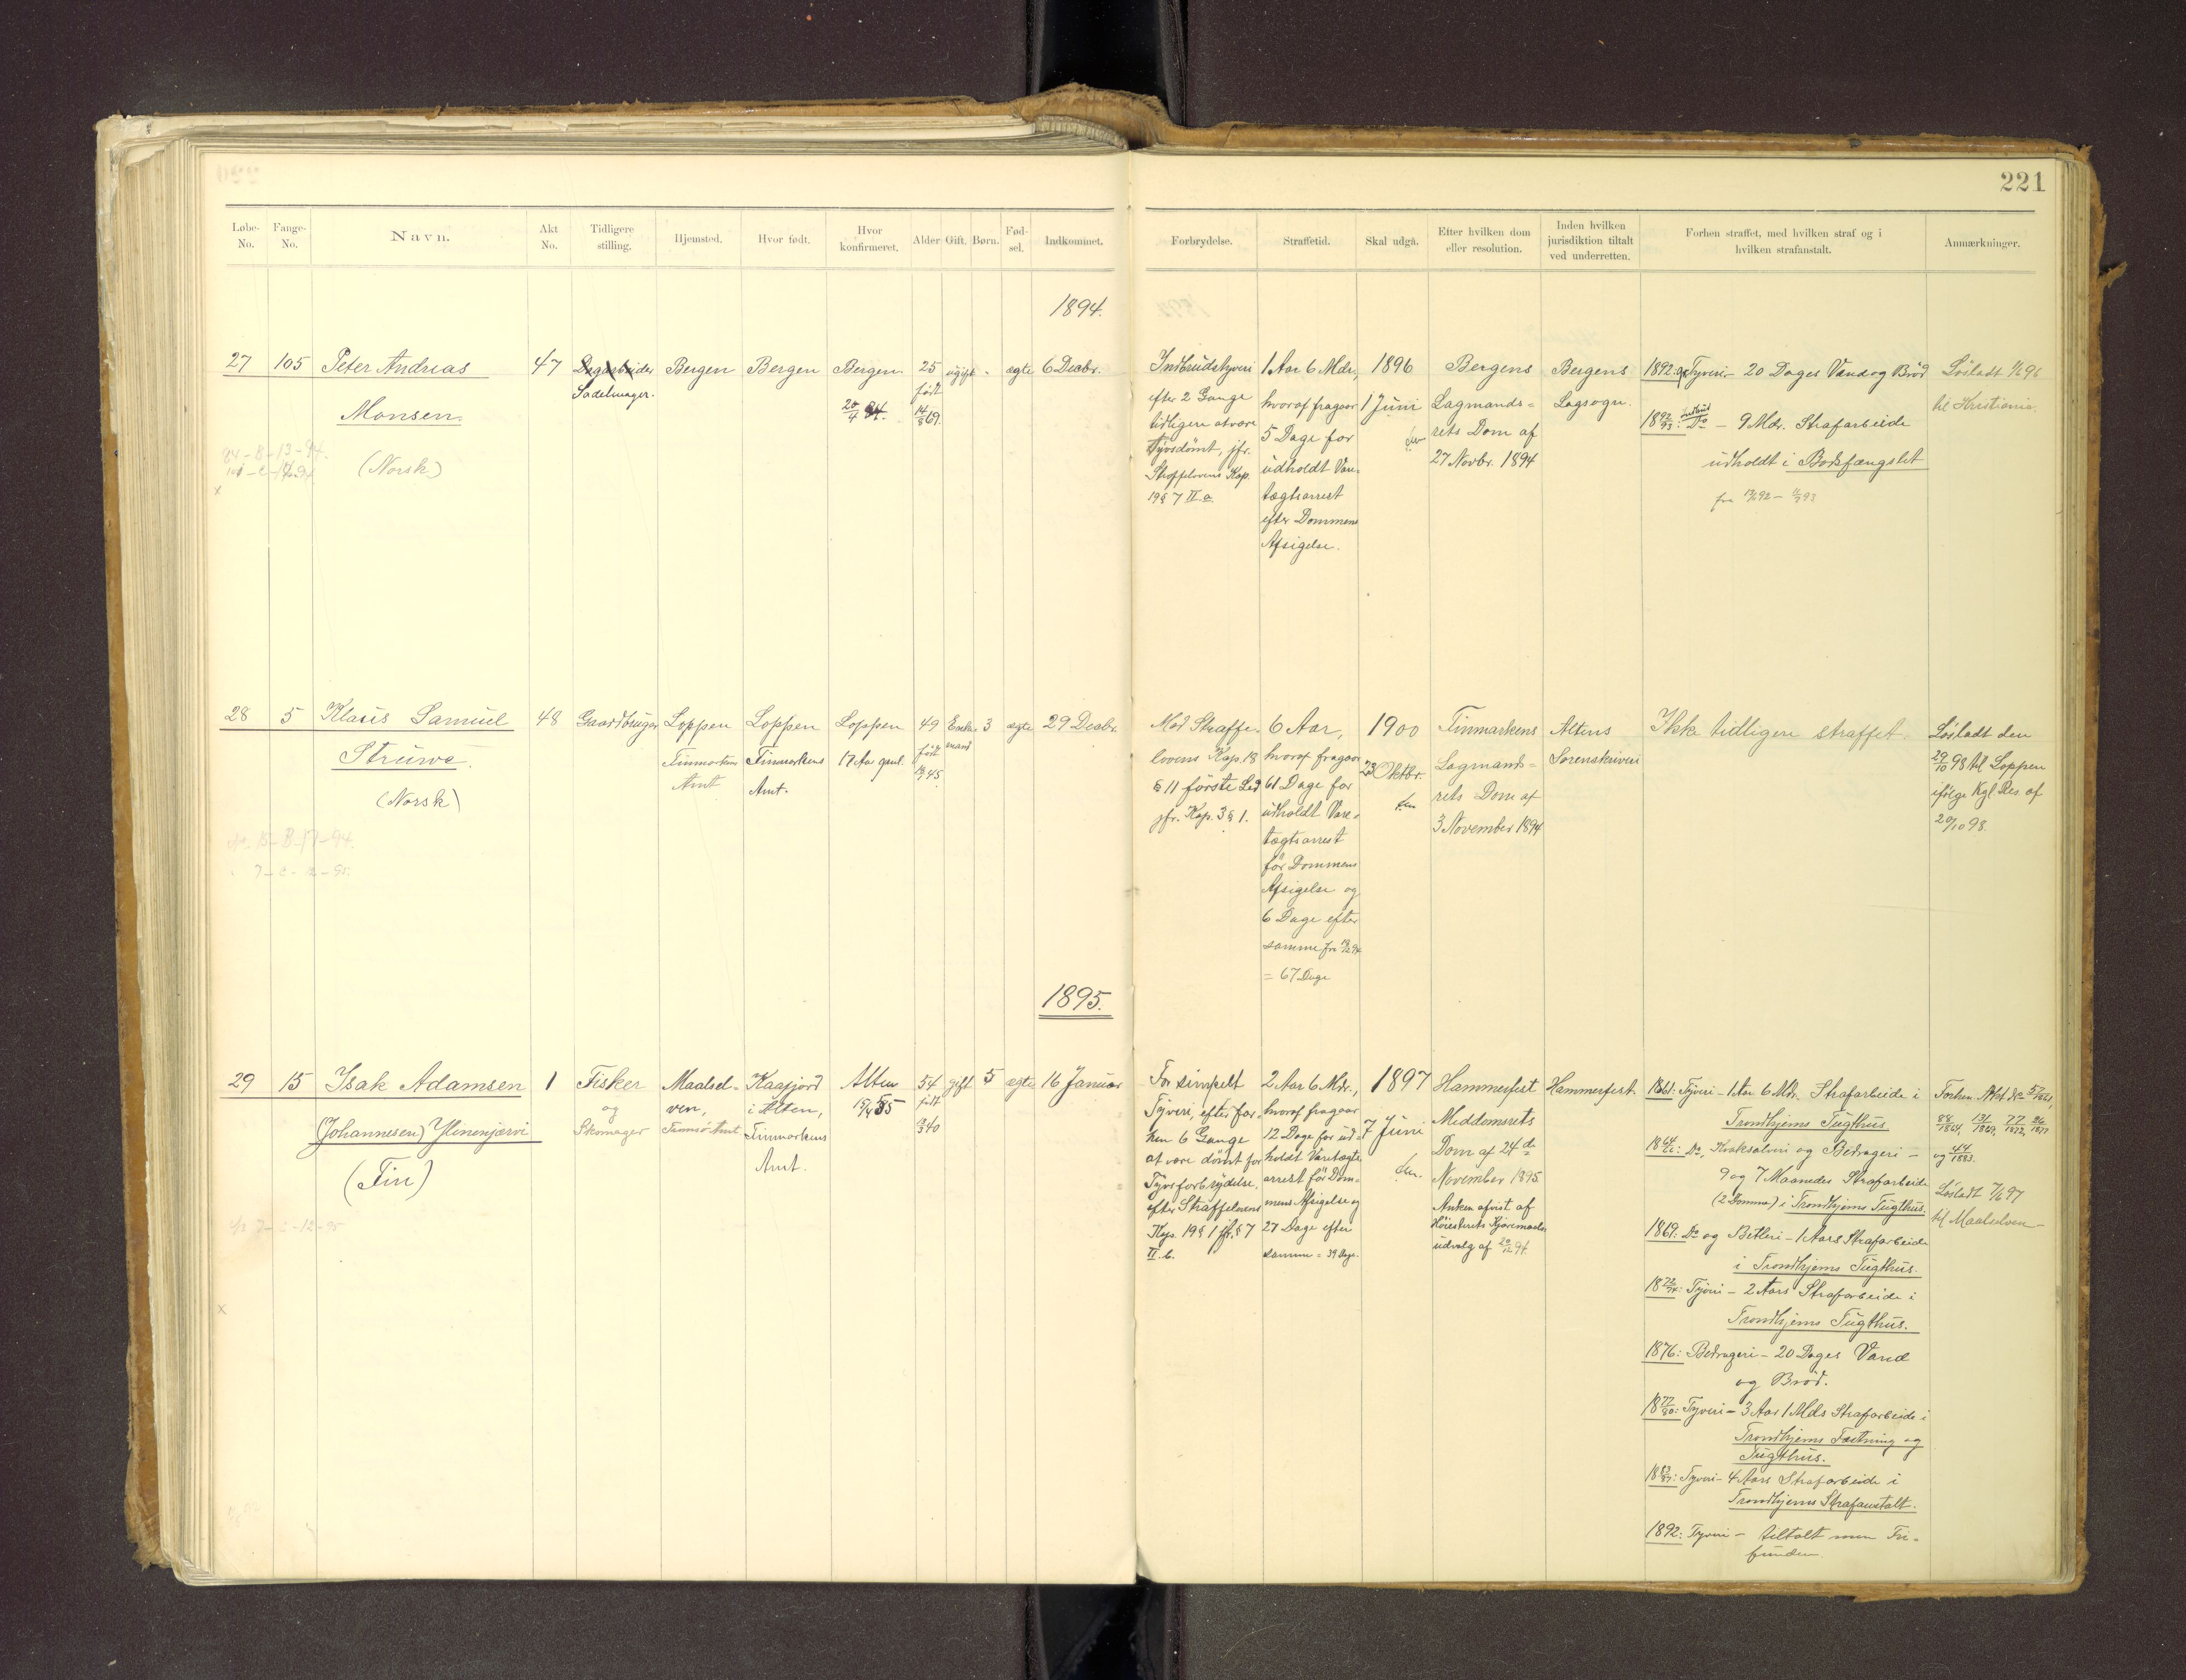 221
Løbe-No. Fange-No. Navn. Akt No. Tidligere stilling. Hjemsted. Hvor født. Hvor konfirmeret. Alder Gift. Børn. Fød-sel. Indkommet.
Forbrydelse. Straffetid. Skal udgå. Efter hvilken dom eller resolution. Inden hvilken jurisdiktion tiltalt ved underretten. Forhen straffet, med hvilken straf og i hvilken strafanstalt. Anmærkninger.
1894.
27 105 Peter Andreas
Monsen.
(Norsk)
47
Dagarbeider
Sadelmager.
Bergen
Bergen
Bergen.
20/4 84.
25
født
14/8 69.
ugift
-
ægte
6 Decbr.
Indbrudstyveri
efter 2 Gange
tidligere at være
Tyvsdømt, jfr.
Straffelovens Kap.
19 § 7 II. a.
1 Aar 6 Mdr.,
hvoraf fragaar
5 Dage for
udholdt Vare-
tægtsarrest
efter Dommens
Afsigelse.
1896
1 Juni
Bergens
Lagmands-
rets Dom af
27 Novbr. 1894
Bergens
Lagsogn.
1892: Tyveri - 20 Dages Vand og Brød
1892/93: Do - 9 Mdr. Strafarbeide
udholdt i Bodsfængslet
Løsladt 1/6 96
til Kristiania.
28 5 Klaus Samuel
Struwe.
(Norsk)
48
Gaardbruger
Loppen
Finmarkens
Amt
Loppen
Finmarkens
Amt.
Loppen
17 Aar gml.
49
født
45
Enke-
mand
3
ægte
29 Decbr.
Mod Straffe-
lovens Kap. 18
§ 11 første Led
jfr. Kap. 3 § 1.
6 Aar,
hvoraf fragaar
61 Dage for
udholdt Vare-
tægtsarrest
før Dommens
Afsigelse og
6 Dage efter
samme fra
= 67 Dage
1900
23 Oktbr.
Finmarkens
Lagmands-
rets Dom af
3 November 1894
Altens
Sorenskriveri
Ikke tidligere straffet.
Løsladt den
29/10 98 til Loppen
ifølge Kgl. Res. af
20/10 98.
1895.
29 15 Isak Adamsen
(Johannesen) Ylinenjærvi
(Fin)
1
Fisker
og
Skomager
Maalsel-
ven,
Tromsø Amt
Kaafjord
i Alten,
Finmarkens
Amt.
Alten
15/4 55
54
født
40
gift
5
ægte
16 Januar
For simpelt
Tyveri, efter for-
hen 6 Gange
at være dømt for
Tyvsforbrydelse,
efter Straffelovens
Kap. 19 § 1 jfr. § 7
II. b.
2 Aar 6 Mdr.,
hvoraf fragaar
12 Dage for ud-
holdt Varetægts-
arrest før Dom-
mens Afsigelse og
27 Dage efter
samme = 39 Dage.
1897
7 Juni
Hammerfest
Meddomsrets
Dom af 24de
November 1895
Anken afvist af
Høiesterets Kjæremaals-
udvalg af 20/12 94
Hammerfest.
1861: Tyveri - 1 Aar 6 Mdr. Strafarbeide i
Trondhjems Tugthus.
Do, Kvaksalveri og Bedrageri -
9 og 7 Maaneders Strafarbeide
(2 Domme) i Trondhjems Tugthus.
1869: Do og Betleri - 1 Aars Strafarbeide
i Trondhjems Tugthus.
1872/74: Tyveri - 2 Aars Strafarbeide i
Trondhjems Tugthus.
1876: Bedrageri - 20 Dages Vand
og Brød.
1877/80: Tyveri - 3 Aar 1 Mds Strafarbeide i
Trondhjems Fæstning og
Tugthus.
1883/87: Tyveri - 4 Aars Strafarbeide i
Trondhjems Strafanstalt.
1892: Tyveri - tiltalt men Fri-
funden.
Forhen Akt No 5/1861,
88/1864, 131/1869, 77/1872, 26/1877
og 44/1883.
Løsladt 7/6 97
til Maalselven